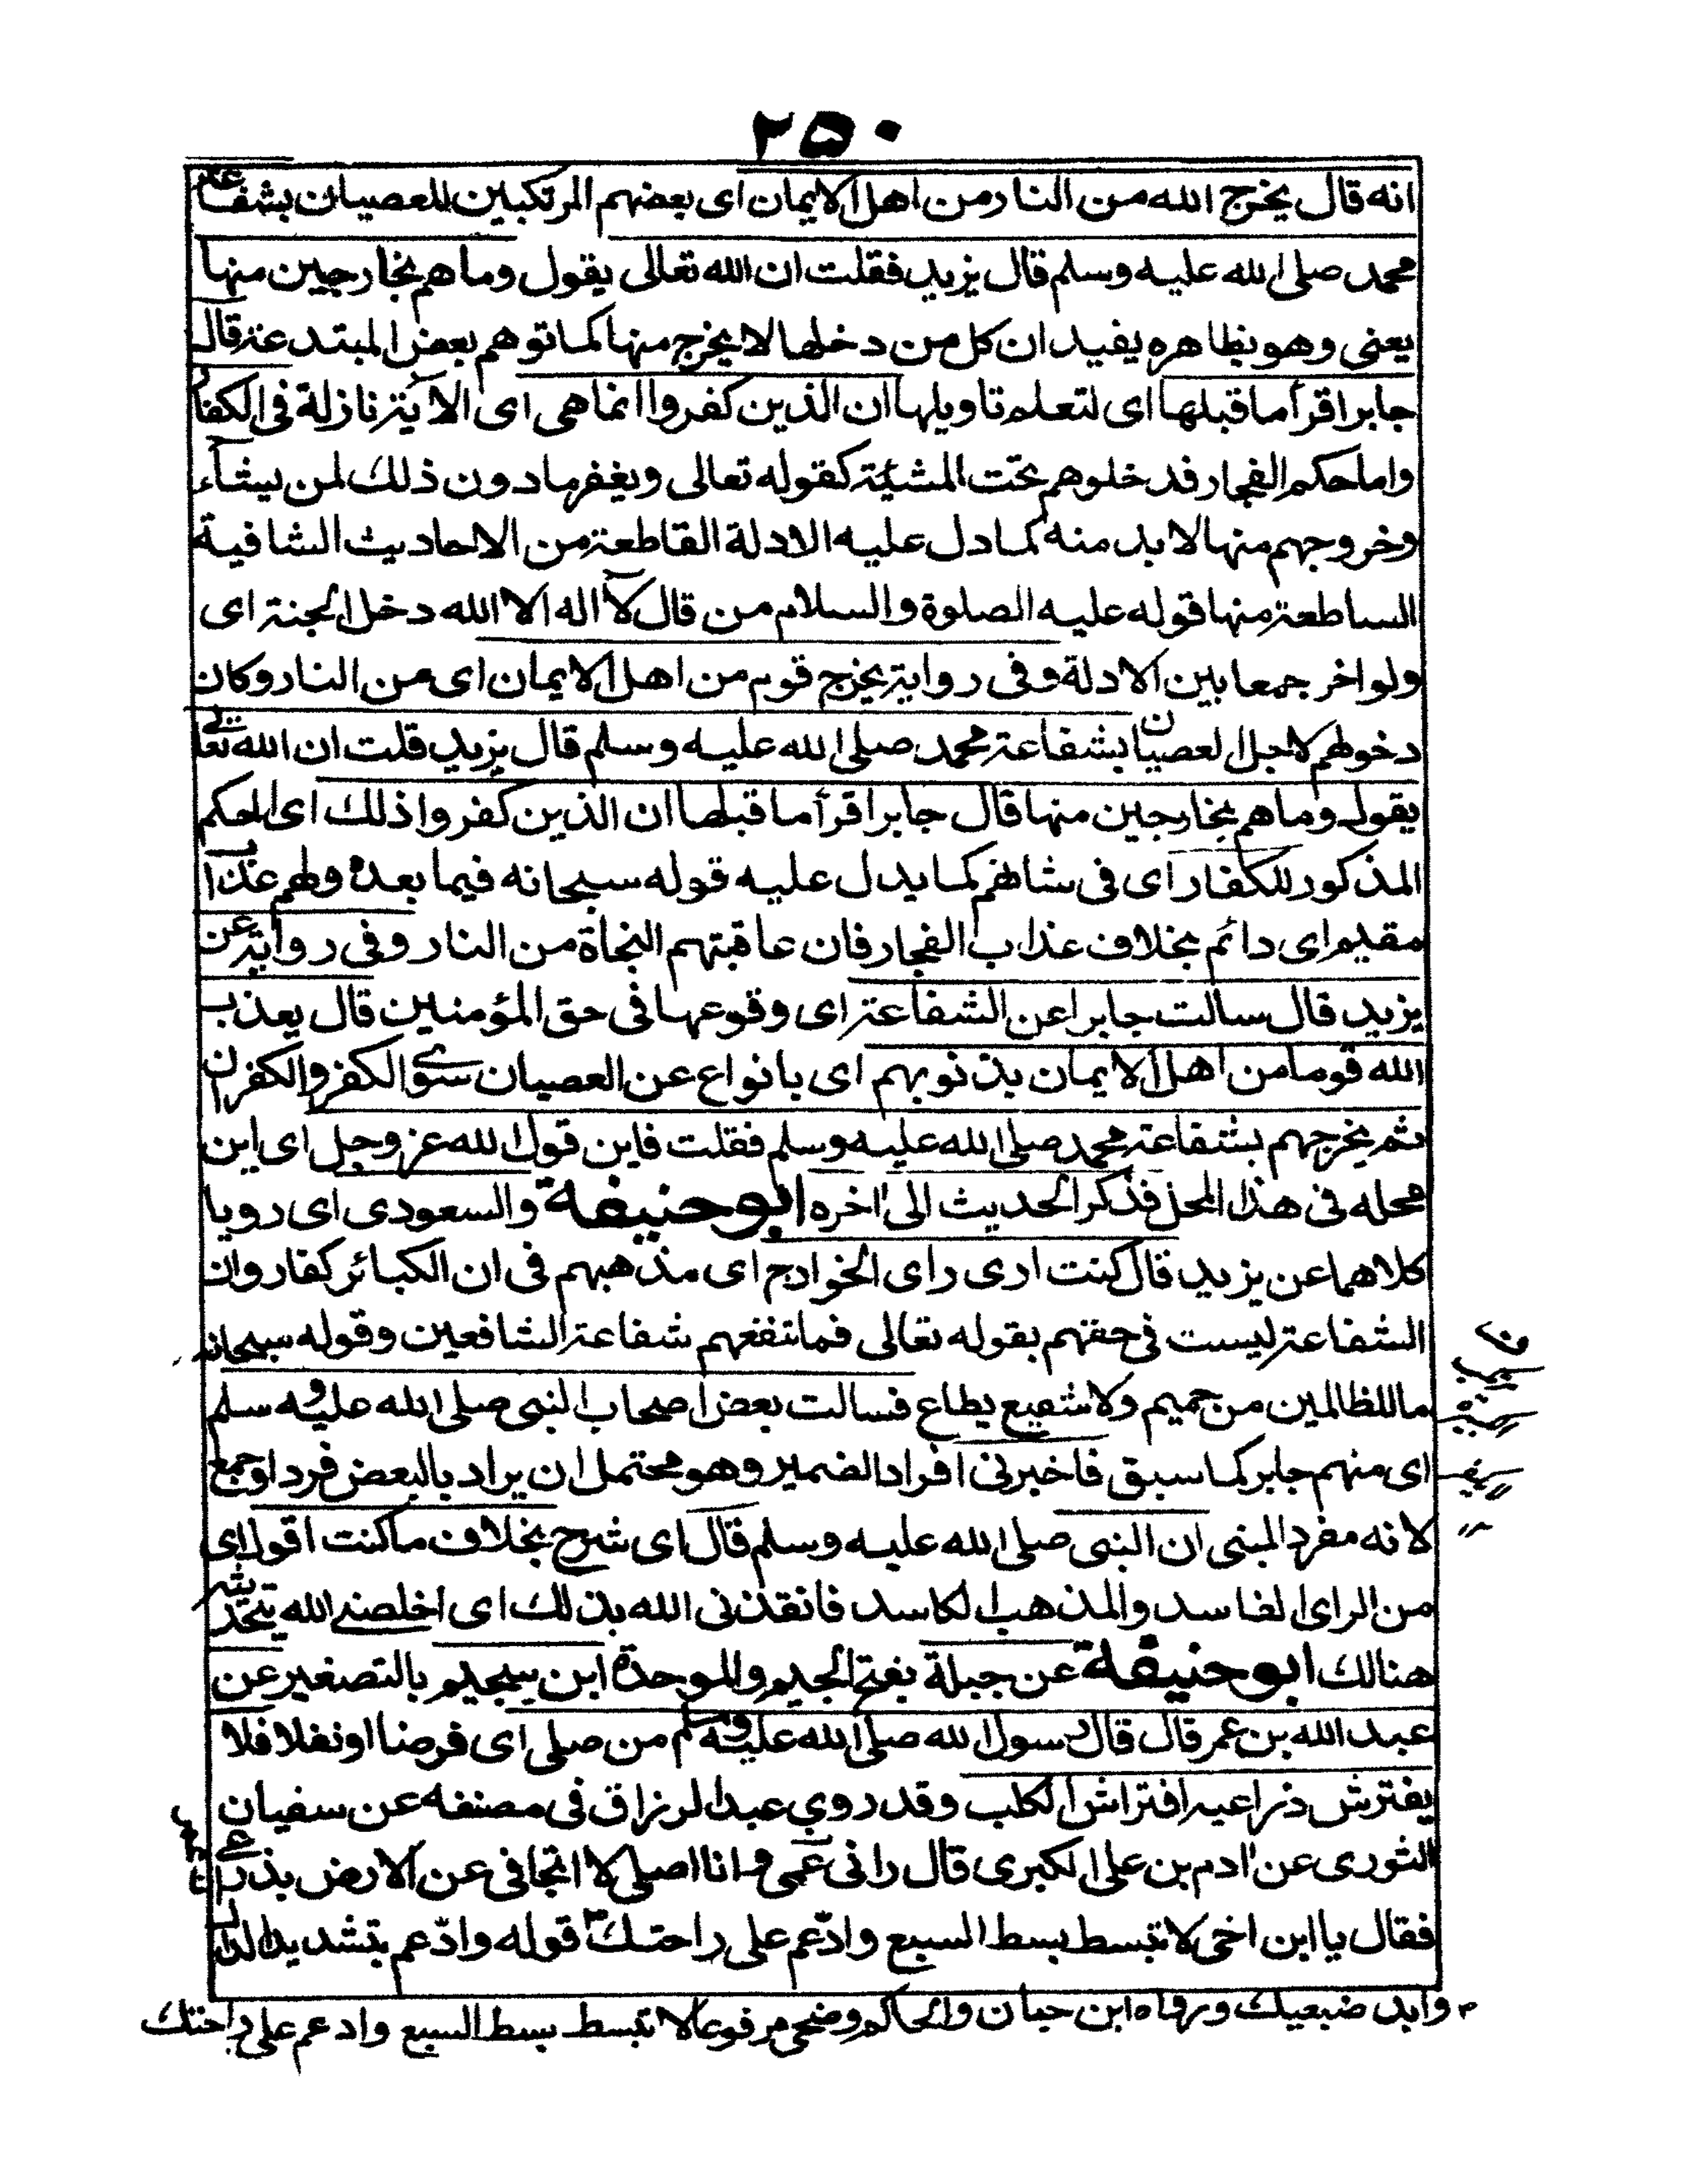 ٢٥٠
انه قال يخرج الله من النار من اهل الايمان اى بعضهم المرتكبين للعصيان بشفاعة
محمد صلى الله عليه وسلم قال يزيد فقلت ان الله تعالى يقول وما هم بخارجين منها
يعنى وهو بظاهره يفيد ان كل من دخلها لا يخرج منها كما توهم بعض المبتدعة قال
جابر اقرأ ما قبلها اى لتعلم تاويلها ان الذين كفروا انما هى اى الآية نازلة فى الكفار
واما حكم الفجار فدخلوهم تحت المشئية كقوله تعالى ويغفر ما دون ذلك لمن يشآء
وخروجهم منها لا بد منه كما دل عليه الادلة القاطعة من الاحاديث الشافية
الساطعة منها قوله عليه الصلوة والسلام من قال لآ اله الا الله دخل الجنة اى
ولو اخر جمعا بين الادلة وفى رواية يخرج قوم من اهل الايمان اى من النار وكان
دخولهم لاجل العصيان بشفاعة محمد صلى الله عليه وسلم قال يزيد قلت ان الله تعالى
يقول وما هم بخارجين منها قال جابر اقرأ ما قبلها ان الذين كفروا ذلك اى الحكم
المذكور للكفار اى فى شانهم كما يدل عليه قوله سبحانه فيما بعده ولهم عذاب
مقيم اى دائم بخلاف عذاب الفجار فان عاقبتهم النجاة من النار وفى رواية عن
يزيد قال سالت جابرا عن الشفاعة اى وقوعها فى حق المؤمنين قال يعذب
الله قوما من اهل الايمان بذنوبهم اى بانواع عن العصيان سوى الكفر والكفران
ثم يخرجهم بشفاعة محمد صلى الله عليه وسلم فقلت فاين قول الله عز وجل اى اين
محله فى هذا المحل فذكر الحديث الى اخره ابو حنيفة والسعودى اى رويا
كلاهما عن يزيد قال كنت ارى راى الخوارج اى مذهبهم فى ان الكبائر كفار وان
الشفاعة ليست فى حقهم بقوله تعالى فما تنفعهم شفاعة الشافعين وقوله سبحانه
ما للظالمين من حميم ولا شفيع يطاع فسالت بعض اصحاب النبى صلى الله عليه وسلم
اى منهم جابر كما سبق فاخبرنى افراد الضمير وهو محتمل ان يراد بالبعض فردا وجمع
لانه مفرد المبنى ان النبى صلى الله عليه وسلم قال اى شرح بخلاف ما كنت اقول اى
من الراى الفاسد والمذهب الكاسد فانقذنى الله بذلك اى اخلصنى الله
هنالك ابو حنيفة عن جبلة بفتح الجيم والموحدة ابن سجيم بالتصغير عن
عبد الله بن عمر قال قال رسول الله صلى الله عليه وسلم من صلى اى فرضا او نفلا فلا
يفترش ذراعيه افتراش الكلب وقد روى عبد الرزاق فى مصنفه عن سفيان
الثورى عن ادم بن على الكبرى قال رانى عمر وانا اصلى لا اتجافى عن الارض بذراعى
فقال يا ابن اخى لا تبسط بسط السبع وادّعم على راحتك قوله وادّعم بتشديد الدال
وابد ضبعيك ورواه ابن حبان والحاكم مرفوعا لا تبسط بسط السبع وادعم على راحتك